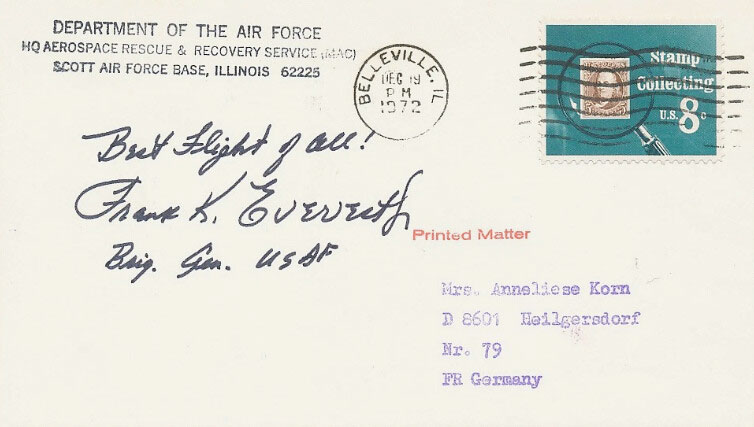 DEPARTMENT OF THE AIR FORCE
HQ AEROSPACE RESCUE & RECOVERY SERVICE (MAC)
SCOTT AIR FORCE BASE, ILLINOIS 62225
BELLEVILLE, IL
DEC 19
PM
1972
Stamp
Collecting
U.S. 8c
Best Flight of all!
Frank K. Everest Jr
Brig. Gen. USAF
Printed Matter
Mrs. Anneliese Korn
D 8601 Heilgersdorf
Nr. 79
FR Germany